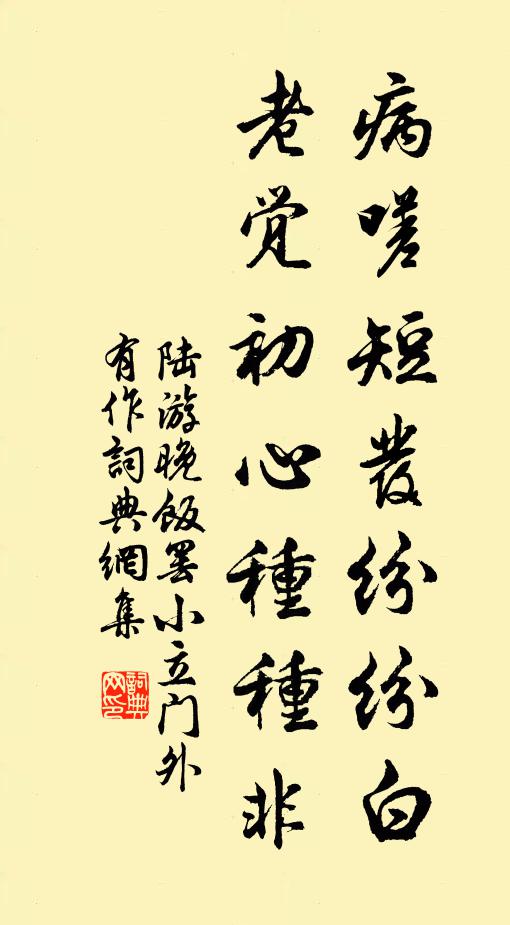 病嗟短發紛紛白
老觉初心種種非
陆游晚飯罢小立门外
有作詞典網集
詞典
网印